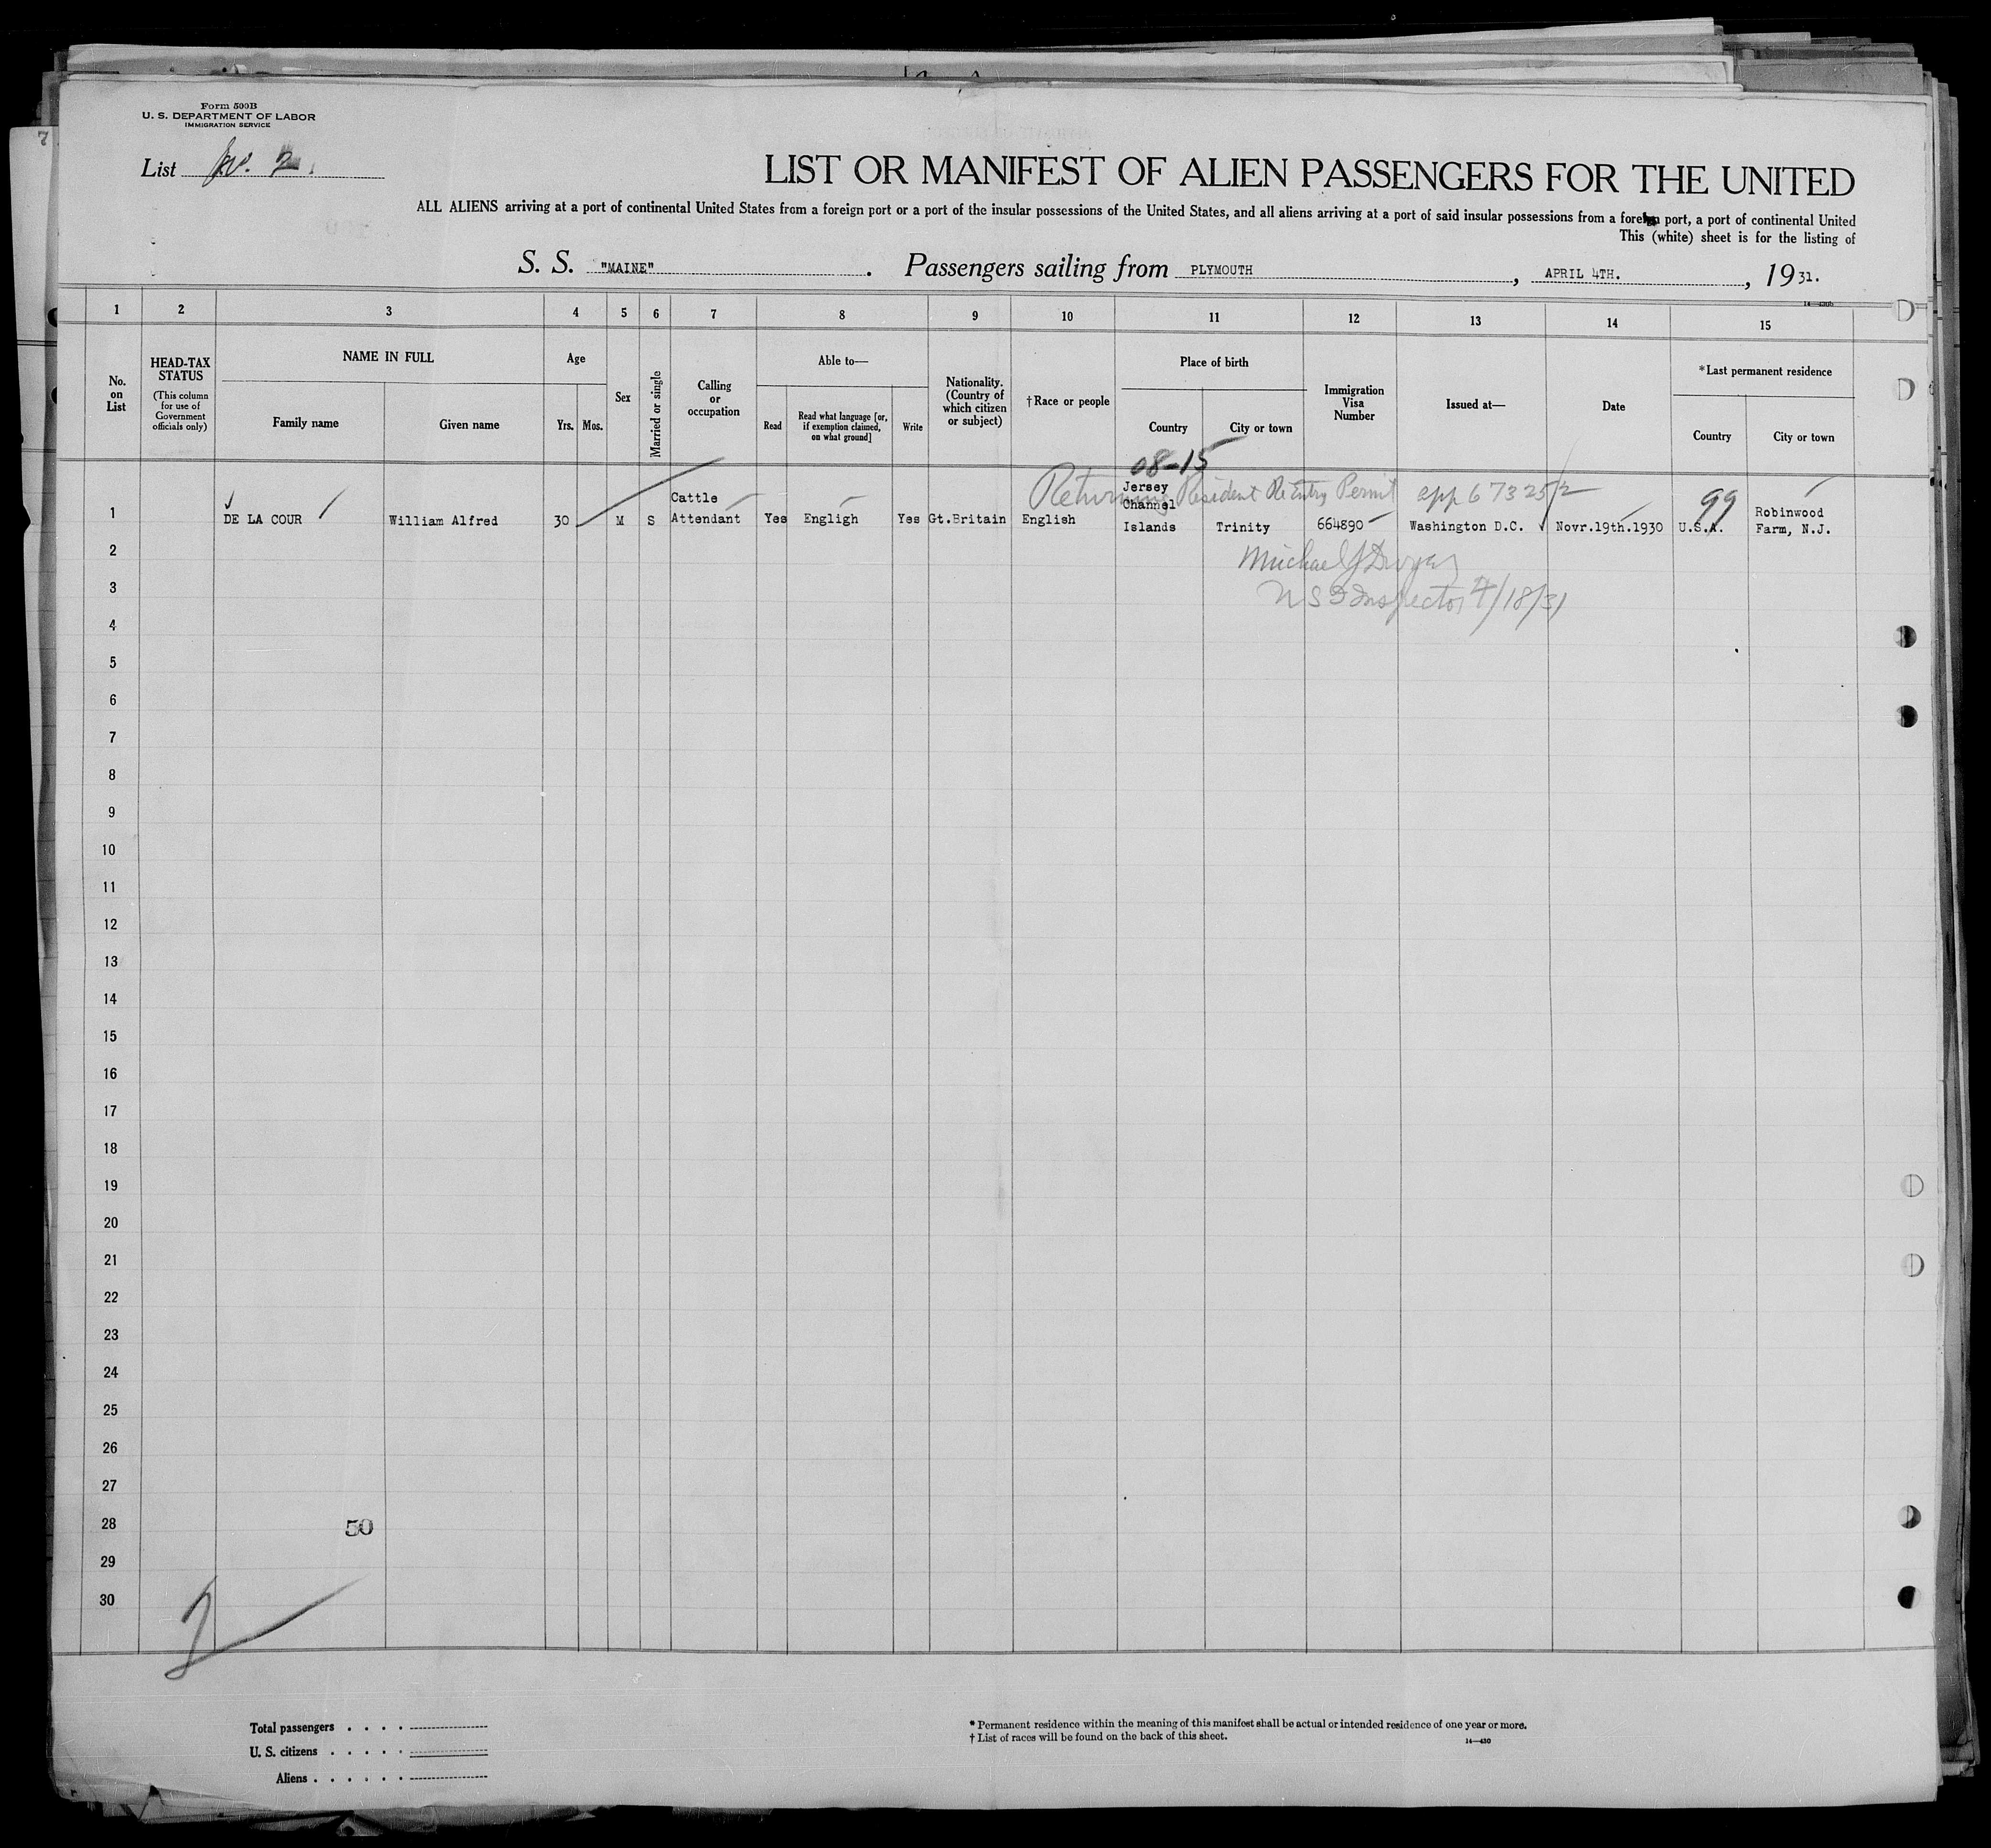 7
Form 500B
U. S. DEPARTMENT OF LABOR
IMMIGRATION SERVICE
List No. 2.
LIST OR MANIFEST OF ALIEN PASSENGERS FOR THE UNITED
ALL ALIENS arriving at a port of continental United States from a foreign port or a port of the insular possessions of the United States, and all aliens arriving at a port of said insular possessions from a foreign port, a port of continental United
This (white) sheet is for the listing of
S. S. "MAINE". Passengers sailing from PLYMOUTH, APRIL 4TH., 1931.
1 2 3 4 5 6 7 8 9 10 11 12 13 14 15
No. on List
HEAD-TAX STATUS
(This column for use of Government officials only)
NAME IN FULL
Family name
Given name
Age
Yrs. Mos.
Sex
Married or single
Calling or occupation
Able to—
Read
Read what language [or, if exemption claimed, on what ground]
Write
Nationality. (Country of which citizen or subject)
†Race or people
Place of birth
Country
City or town
Immigration Visa Number
Issued at—
Date
*Last permanent residence
Country
City or town
08-15
Returning Resident ReEntry Permit app 673252
99
1 DE LA COUR William Alfred 30 M S Cattle Attendant Yes Engligh Yes Gt.Britain English Jersey Channel Islands Trinity 664890 Washington D.C. Novr.19th.1930 U.S.A. Robinwood Farm, N.J.
Michael J
Inspector 4/18/31
2
3
4
5
6
7
8
9
10
11
12
13
14
15
16
17
18
19
20
21
22
23
24
25
26
27
28
50
29
30
2
Total passengers . . . .
U. S. citizens . . . . .
Aliens . . . . . .
* Permanent residence within the meaning of this manifest shall be actual or intended residence of one year or more.
† List of races will be found on the back of this sheet.
14—430